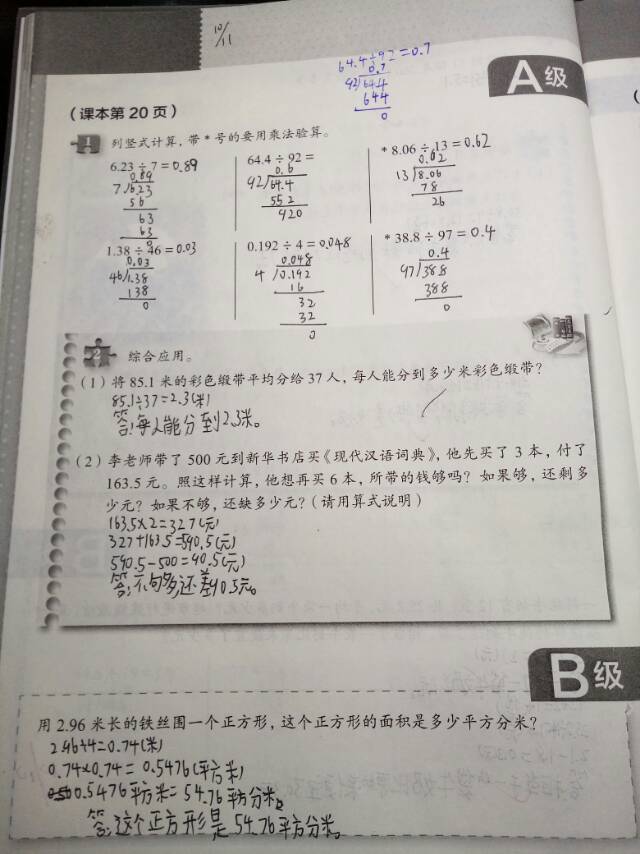 10/11
64.4÷92=0.7
0.7
92 64.4
644
0
A级
(课本第20页)
1 列竖式计算，带*号的要用乘法验算。
6.23÷7=0.89
64.4÷92=
*8.06÷13=0.62
0.89
7 6.23
56
63
63
0
0.6
92 64.4
55 2
920
0.62
13 8.06
78
26
1.38÷46=0.03
0.192÷4=0.048
*38.8÷97=0.4
0.03
46 1.38
138
0
0.048
4 0.192
16
32
32
0
0.4
97 388
388
0
2 综合应用。
(1)将85.1米的彩色缎带平均分给37人，每人能分到多少米彩色缎带？
85.1÷37=2.3(米)
答:每人能分到2.3米。
(2)李老师带了500元到新华书店买《现代汉语词典》，他先买了3本，付了
163.5元。照这样计算，他想再买6本，所带的钱够吗？如果够，还剩多
少元？如果不够，还缺多少元？(请用算式说明)
163.5×2=327(元)
327+163.5=590.5(元)
590.5-500=90.5(元)
答:不够,还差90.5元。
B级
用2.96米长的铁丝围一个正方形，这个正方形的面积是多少平方分米？
2.96÷4=0.74(米)
0.74×0.74=0.5476(平方米)
0.5476平方米=54.76平方分米
答:这个正方形是54.76平方分米。